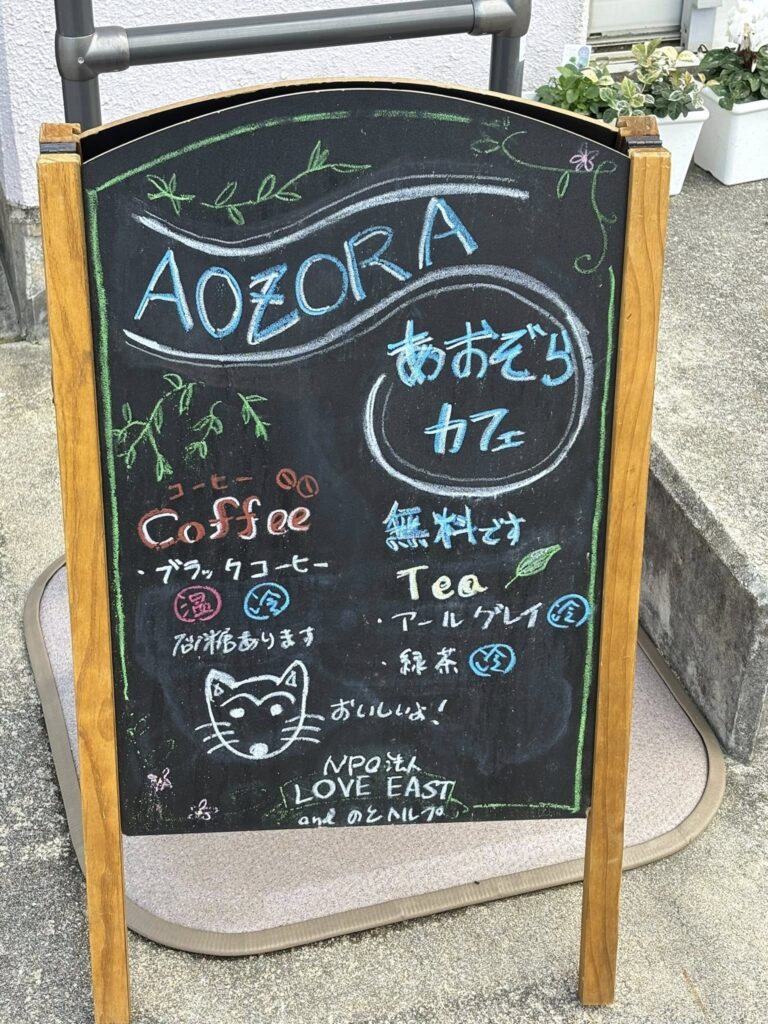 AOZORA
あおぞら
カフェ
コーヒー
Coffee
・ブラックコーヒー
温 冷
砂糖あります
無料です
Tea
・アールグレイ 冷
・緑茶 冷
おいしいよ!
NPO法人
LOVE EAST
and のとヘルプ